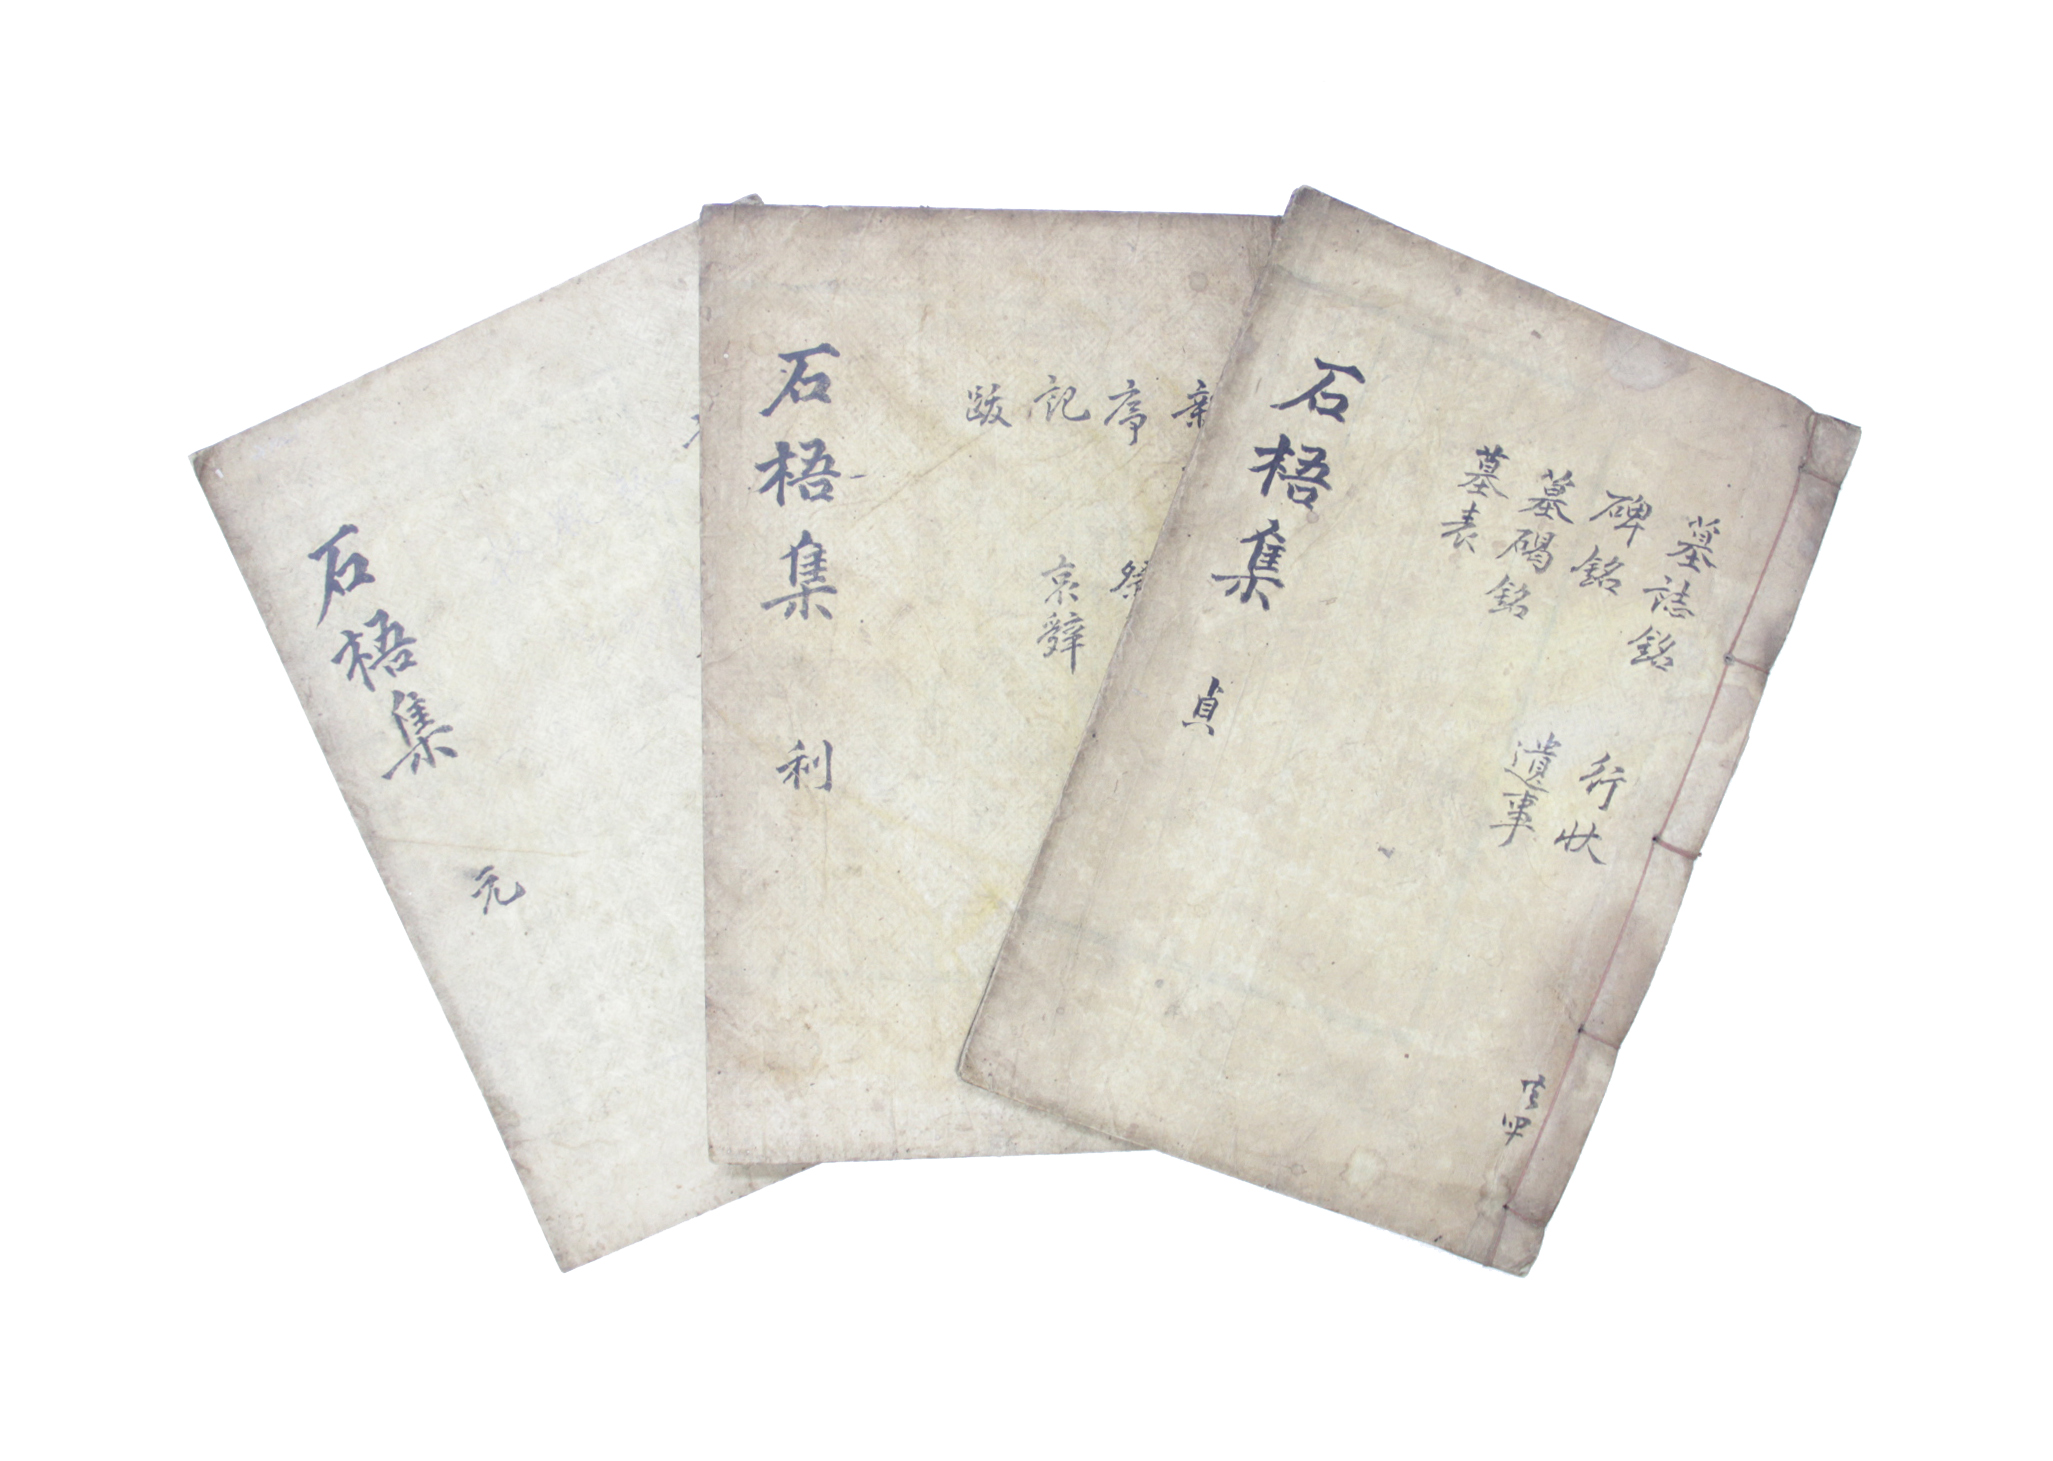 石梧集
元
石梧集
利
序
記
跋
哀辭
石梧集
貞
墓誌銘
碑銘
墓碣銘
墓表
行狀
遺事